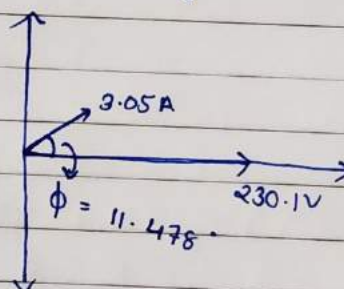 3.05A
230.1V
ϕ = 11.478°